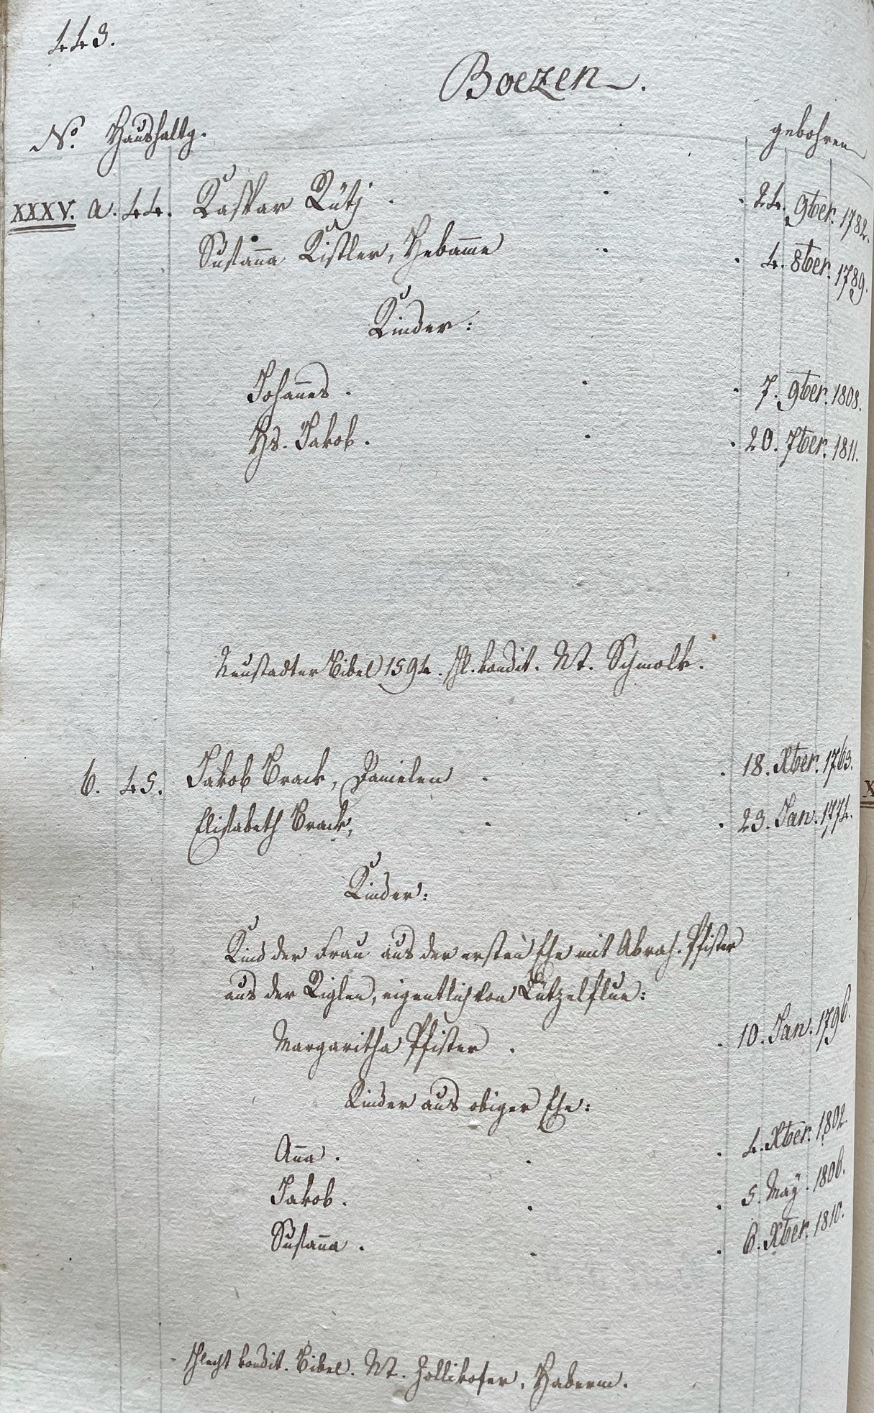 443.
Boezen.
No. Haushaltg. gebohren
XXXV. a. 44. Kaspar Rütj . . . 24. 9ber. 1782.
Susanna Kistler, Hebam̄e . . 4. 8ber. 1789.
Kinder:
Johan̄es . . . 7. 9ber. 1808.
Hs. Jakob. . . 20. 7ber. 1811.
Neustadter Bibel 1594. schl. kondit. Nt. Schmolk.
b. 45. Jakob Brack, Danielen . . 18. Xber. 1763.
Elisabeth Brack, . . 23. Jan. 1774.
Kinder:
Kind der Frau aus der ersten Ehe mit Abrah. Pfister
aus der Riglen, eigentlich von Lützelflue:
Margaritha Pfister . . 10. Jan. 1796.
Kinder aus obiger Ehe:
An̄a . . . 4. Xber. 1802.
Jakob. . . 5. May. 1806.
Susan̄a . . . 6. Xber. 1810.
schlecht kondit. Bibel. Nt. Zollikofer, Haberm.